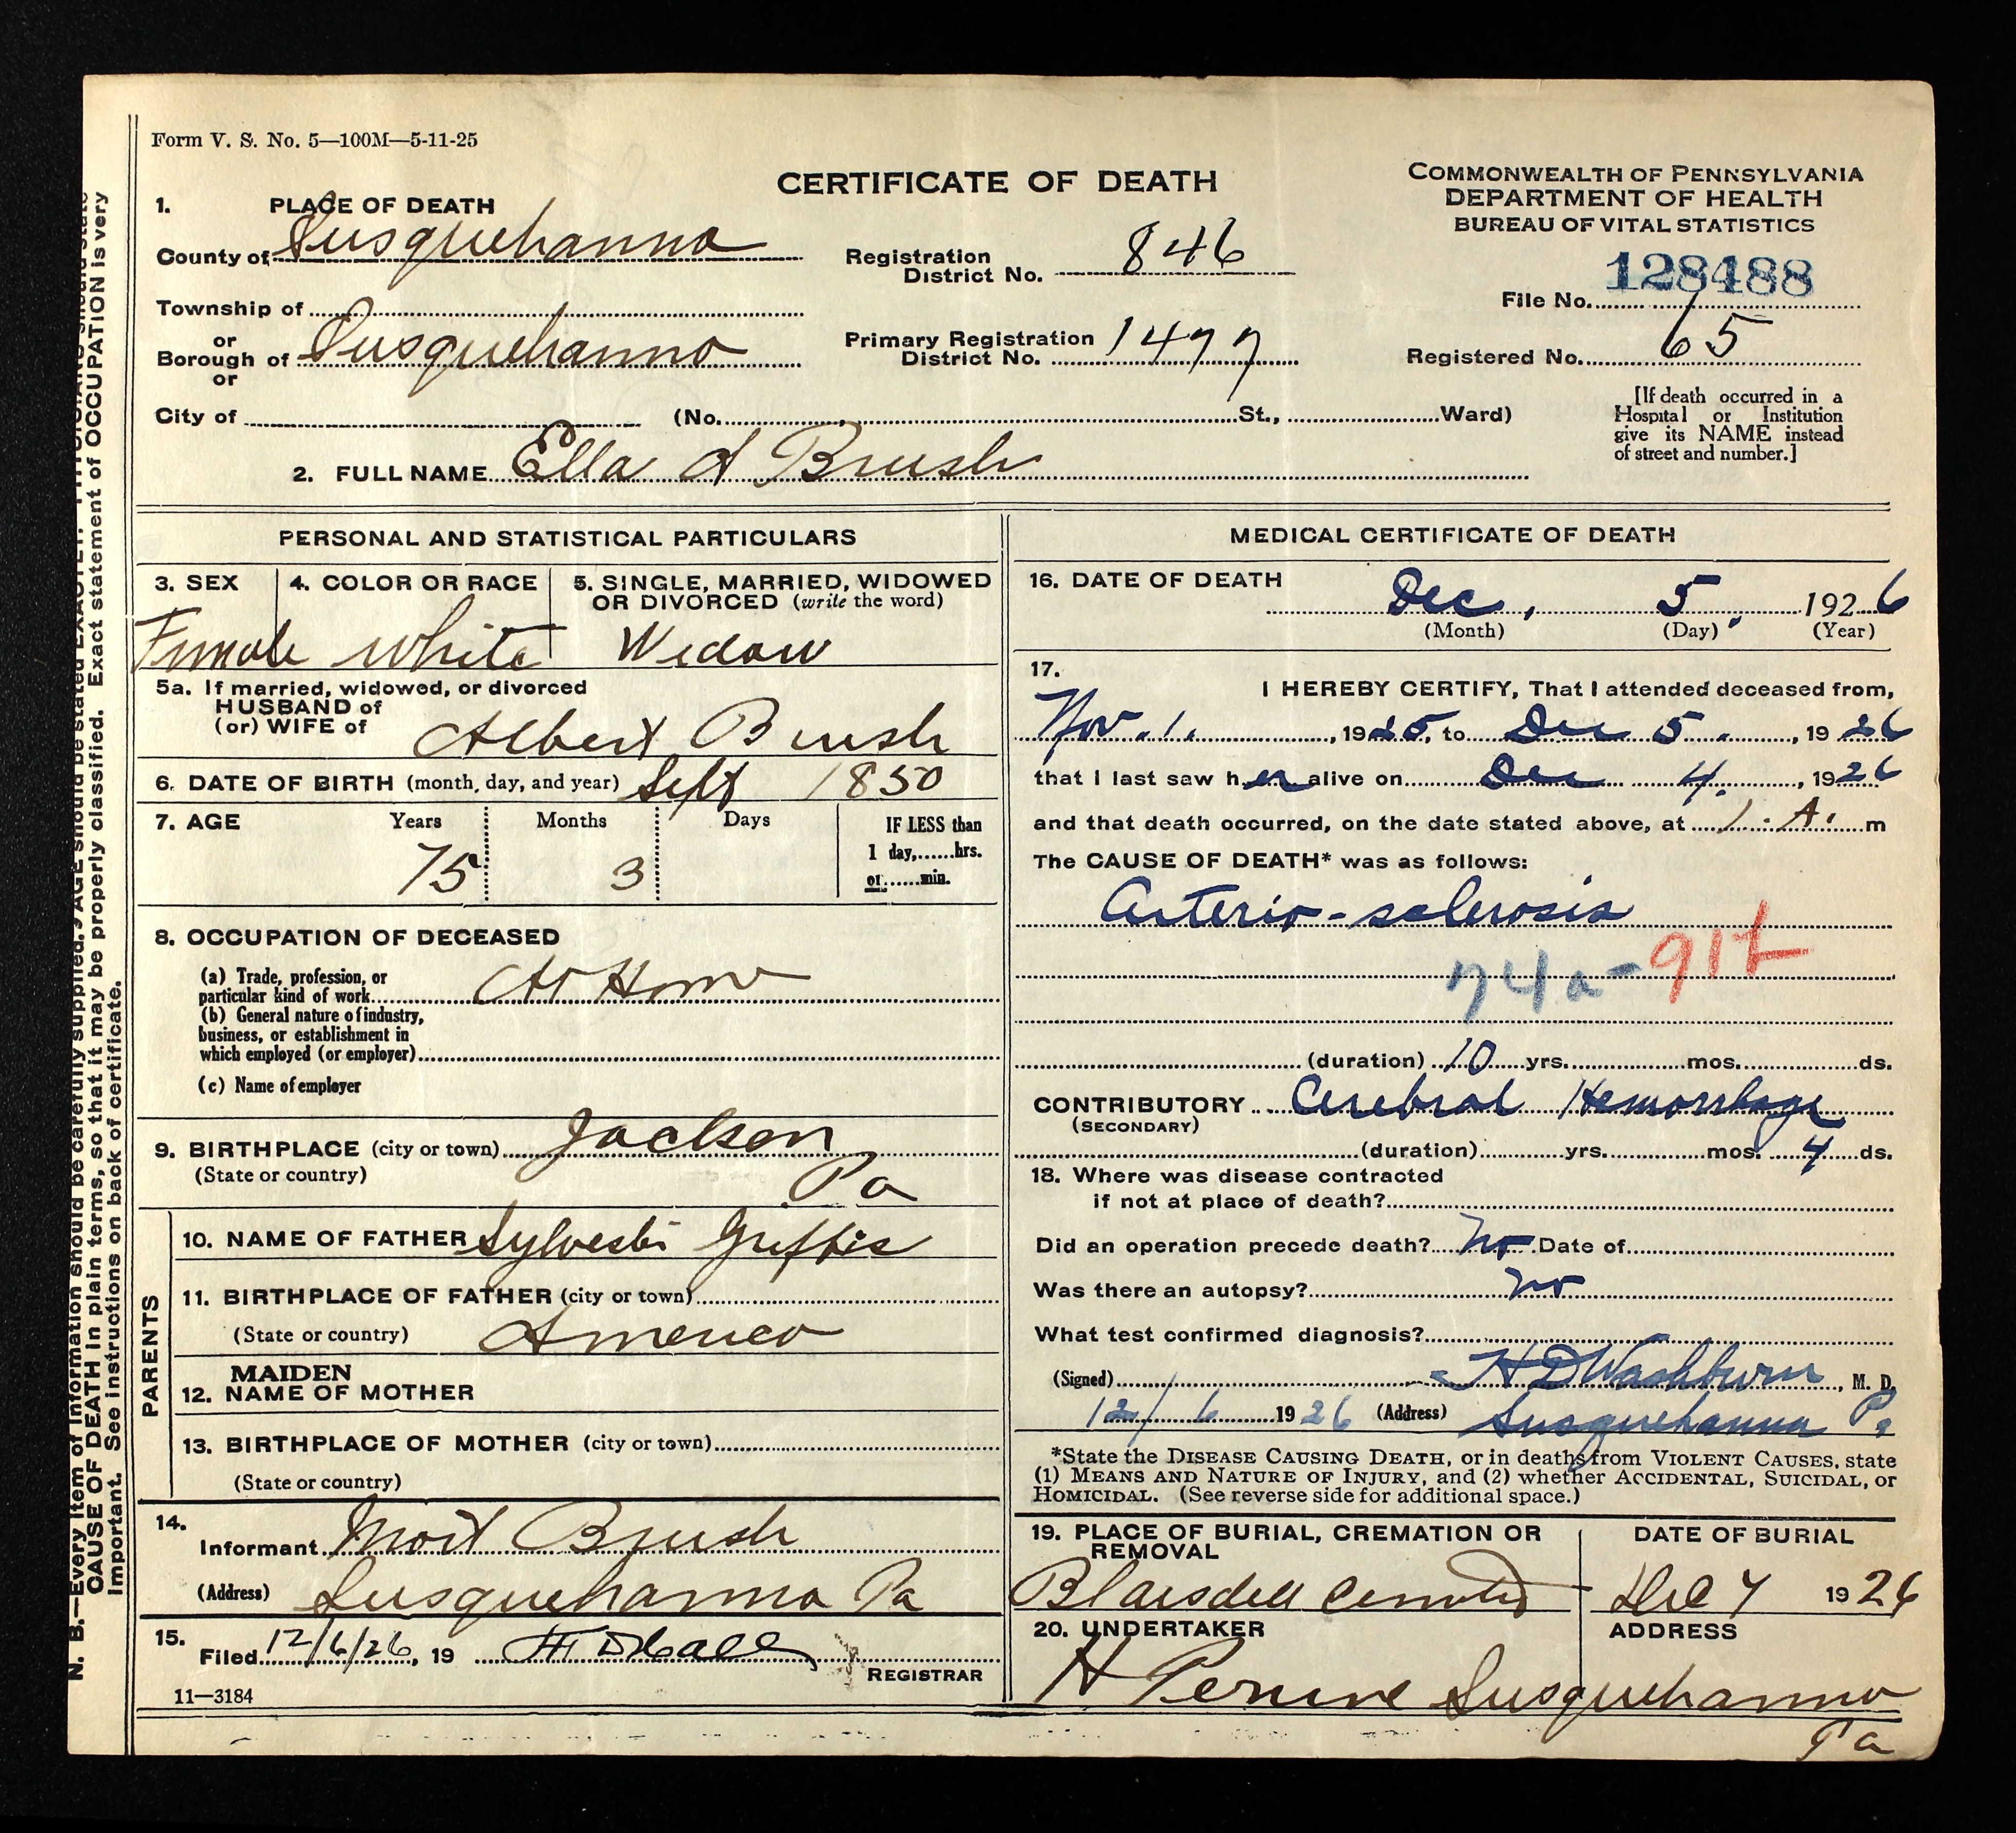 Form V. S. No. 5—100M—5-11-25
CERTIFICATE OF DEATH
COMMONWEALTH OF PENNSYLVANIA
DEPARTMENT OF HEALTH
BUREAU OF VITAL STATISTICS
1. PLACE OF DEATH
County of Susquehanna
Registration District No. 846
128488
File No.
Township of
or
Borough of Susquehanna
or
Primary Registration District No. 1477
Registered No. 65
City of (No. St., Ward)
[If death occurred in a
Hospital or Institution
give its NAME instead
of street and number.]
2. FULL NAME Ella A Brush
PERSONAL AND STATISTICAL PARTICULARS
3. SEX 4. COLOR OR RACE 5. SINGLE, MARRIED, WIDOWED
OR DIVORCED (write the word)
Female White Widow
5a. If married, widowed, or divorced
HUSBAND of
(or) WIFE of Albert Brush
6. DATE OF BIRTH (month, day, and year) Sept 1850
7. AGE Years Months Days IF LESS than
1 day, hrs.
75 3 or min.
8. OCCUPATION OF DECEASED
(a) Trade, profession, or
particular kind of work At Home
(b) General nature of industry,
business, or establishment in
which employed (or employer)
(c) Name of employer
9. BIRTHPLACE (city or town) Jackson
(State or country) Pa
PARENTS
10. NAME OF FATHER Sylvester Griffis
11. BIRTHPLACE OF FATHER (city or town)
(State or country) America
MAIDEN
12. NAME OF MOTHER
13. BIRTHPLACE OF MOTHER (city or town)
(State or country)
14.
Informant Mort Brush
(Address) Susquehanna Pa
15.
Filed 12/6/26, 19
REGISTRAR
11—3184
MEDICAL CERTIFICATE OF DEATH
16. DATE OF DEATH
Dec, 5, 1926
(Month) (Day) (Year)
17.
I HEREBY CERTIFY, That I attended deceased from,
Nov. 1, 1925, to Dec 5, 1926
that I last saw her alive on Dec 4, 1926
and that death occurred, on the date stated above, at 1. A. m
The CAUSE OF DEATH* was as follows:
Arterio-sclerosis
74a - 91
(duration) 10 yrs. mos. ds.
CONTRIBUTORY Cerebral Hemorrhage
(SECONDARY)
(duration) yrs. mos. 4 ds.
18. Where was disease contracted
if not at place of death?
Did an operation precede death? No Date of
Was there an autopsy? No
What test confirmed diagnosis?
(Signed) H D Washburn, M. D.
12/6 1926 (Address) Susquehanna Pa
*State the DISEASE CAUSING DEATH, or in deaths from VIOLENT CAUSES, state
(1) MEANS AND NATURE OF INJURY, and (2) whether ACCIDENTAL, SUICIDAL, or
HOMICIDAL. (See reverse side for additional space.)
19. PLACE OF BURIAL, CREMATION OR
REMOVAL
DATE OF BURIAL
Blaisdell Dec 7 1926
20. UNDERTAKER ADDRESS
H Perrine Susquehanna
Pa
N. B.—Every item of information should be carefully supplied. AGE should be stated EXACTLY. PHYSICIANS should state
CAUSE OF DEATH in plain terms, so that it may be properly classified. Exact statement of OCCUPATION is very
important. See instructions on back of certificate.